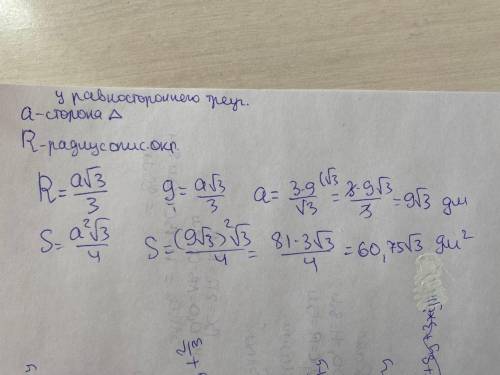 у равностороннего треуг.
a-сторона △
R-радиус опис. окр.
R = a√3/3    9 = a√3/3    a = 3·9(√3/√3 = 3·9√3/3 = 9√3 дм
S = a²√3/4    S = (9√3)²√3/4 = 81·3√3/4 = 60,75√3 дм²